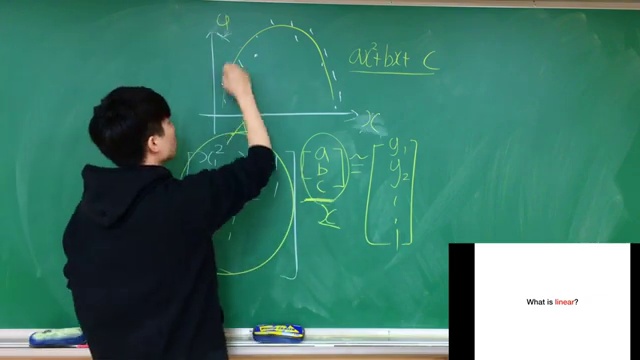 y
ax²+bx+ c
x
x₁²
a
b
c
≃
y₁
y₂
x
What is linear?